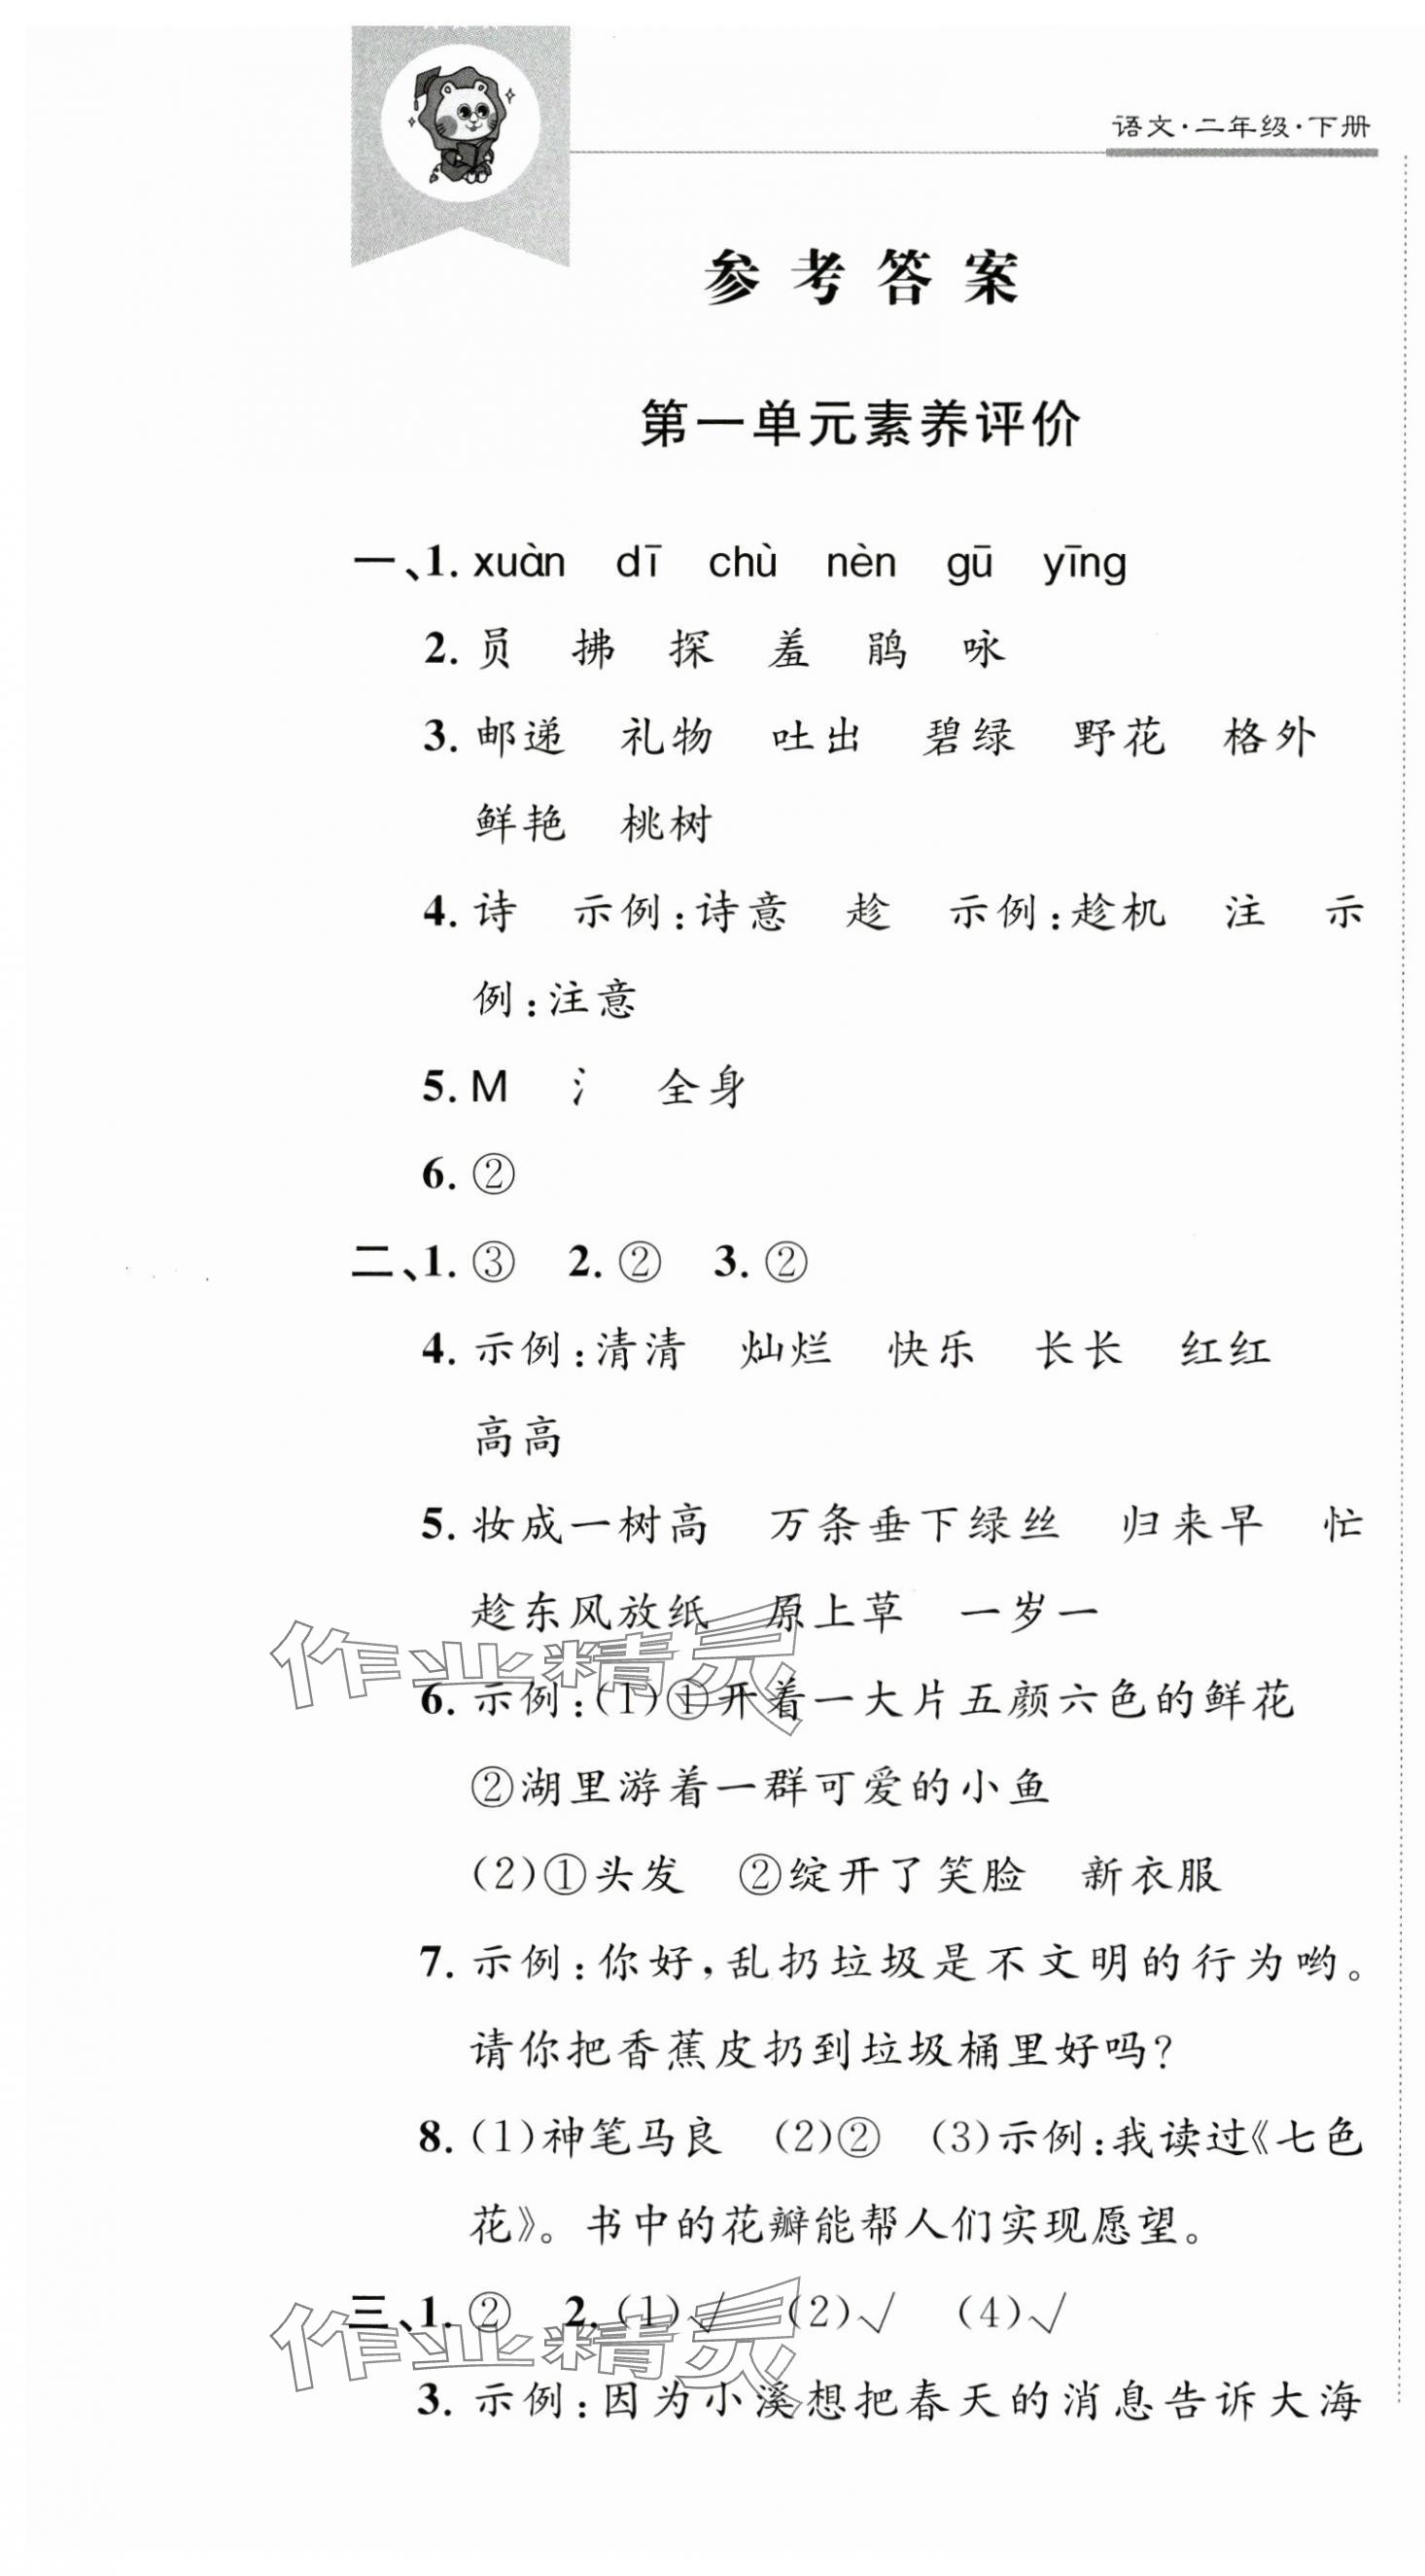 语文·二年级·下册
参考答案
第一单元素养评价
一、1. xuàn dī chù nèn gū yīng
2. 员 拂 探 羞 鹃 咏
3. 邮递 礼物 吐出 碧绿 野花 格外
鲜艳 桃树
4. 诗 示例:诗意 趁 示例:趁机 注 示
例:注意
5. M 氵 全身
6. ②
二、1. ③ 2. ② 3. ②
4. 示例:清清 灿烂 快乐 长长 红红
高高
5. 妆成一树高 万条垂下绿丝 归来早 忙
趁东风放纸 原上草 一岁一
6. 示例:(1)①开着一大片五颜六色的鲜花
②湖里游着一群可爱的小鱼
(2)①头发 ②绽开了笑脸 新衣服
7. 示例:你好,乱扔垃圾是不文明的行为哟。
请你把香蕉皮扔到垃圾桶里好吗?
8. (1)神笔马良 (2)② (3)示例:我读过《七色
花》。书中的花瓣能帮人们实现愿望。
三、1. ② 2. (1)√ (2)√ (4)√
3. 示例:因为小溪想把春天的消息告诉大海
作业精灵
作业精灵